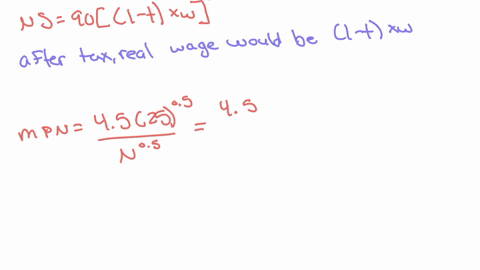 NS = 90[(1-t) × w]
after tax, real wage would be (1-t) × w
MPN = 4.5(25)^0.5 / N^0.5 = 4.5